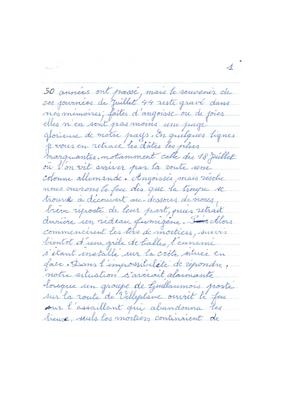 1
30 années ont passé, mais le souvenir de
ces journées de Juillet 44 reste gravé dans
nos mémoires, faites d'angoisse ou de joies
elles n'en sont pas moins une page
glorieuse de notre pays. En quelques lignes
je vous en retrace les dates les plus
marquantes, notamment celle du 18 Juillet
où l'on vit arriver par la route une
colonne allemande. Angoissés, mais résolus
nous ouvrons le feu dès que la troupe se
trouve à découvert au-dessous de nous,
brève riposte de leur part, puis retrait
derrière un rideau fumigène. Alors
commencèrent les tirs de mortiers, suivis
bientôt d'une grêle de balles, l'ennemi
s'étant installé sur la crête située en
face. Dans l'impossibilité de répondre,
notre situation s'avérait alarmante
lorsque un groupe de Guillaumois posté
sur la route de Villeplane ouvrit le feu
sur l'assaillant qui abandonna les
lieux, seuls les mortiers continuèrent de